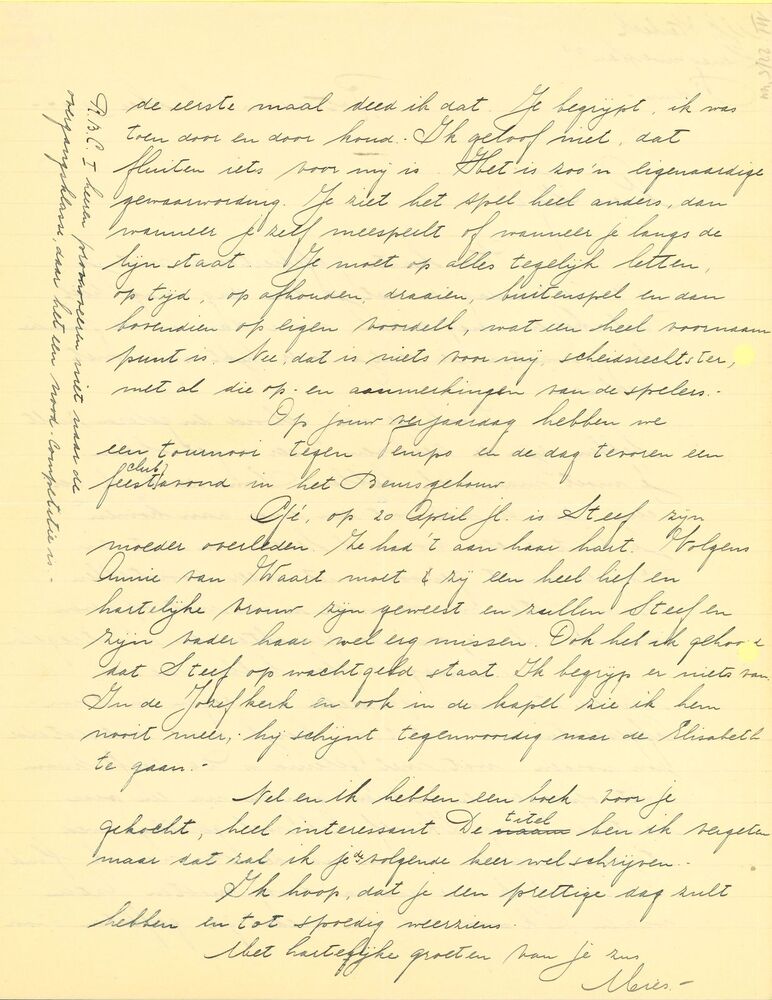 de eerste maal deed ik dat. Je begrijpt, ik was
toen door en door koud.- Ik geloof niet, dat
fluiten iets voor mij is. Het is zoo'n eigenaardige
gewaarwording. Je ziet het spel heel anders, dan
wanneer je zelf meespeelt of wanneer je langs de
lijn staat. Je moet op alles tegelijk letten,
op tijd, op afhouden, draaien, buitenspel en dan
bovendien op eigen voordeel, wat een heel voornaam
punt is. Nee, dat is niets voor mij, scheidsrechtster,
met al die op- en aanmerkingen van de spelers.-
Op jouw verjaardag hebben we
een tournooi tegen Tempo en de dag tevoren een
feest(club)avond in het Beursgebouw.
Gé, op 20 April jl. is Steef zijn
moeder overleden. Ze had 't aan haar hart. Volgens
Annie van Waart moet zij een heel lief en
hartelijke vrouw zijn geweest en zullen Steef en
zijn vader haar wel erg missen. Ook heb ik gehoord
dat Steef op wachtgeld staat. Ik begrijp er niets van.
In de Jozefkerk en ook in de kapel zie ik hem
nooit meer,- hij schijnt tegenwoordig naar de Elisabeth
te gaan.-
Nel en ik hebben een boek voor je
gekocht, heel interessant. De naam titel ben ik vergeten
maar dat zal ik je de volgende keer wel schrijven.-
Ik hoop, dat je een prettige dag zult
hebben en tot spoedig weerziens.
Met hartelijke groeten van je zus
Mies.-
R.B.C. I heeren promoveeren niet naar de
overgangsklasse, daar het een nood-competitie is.-